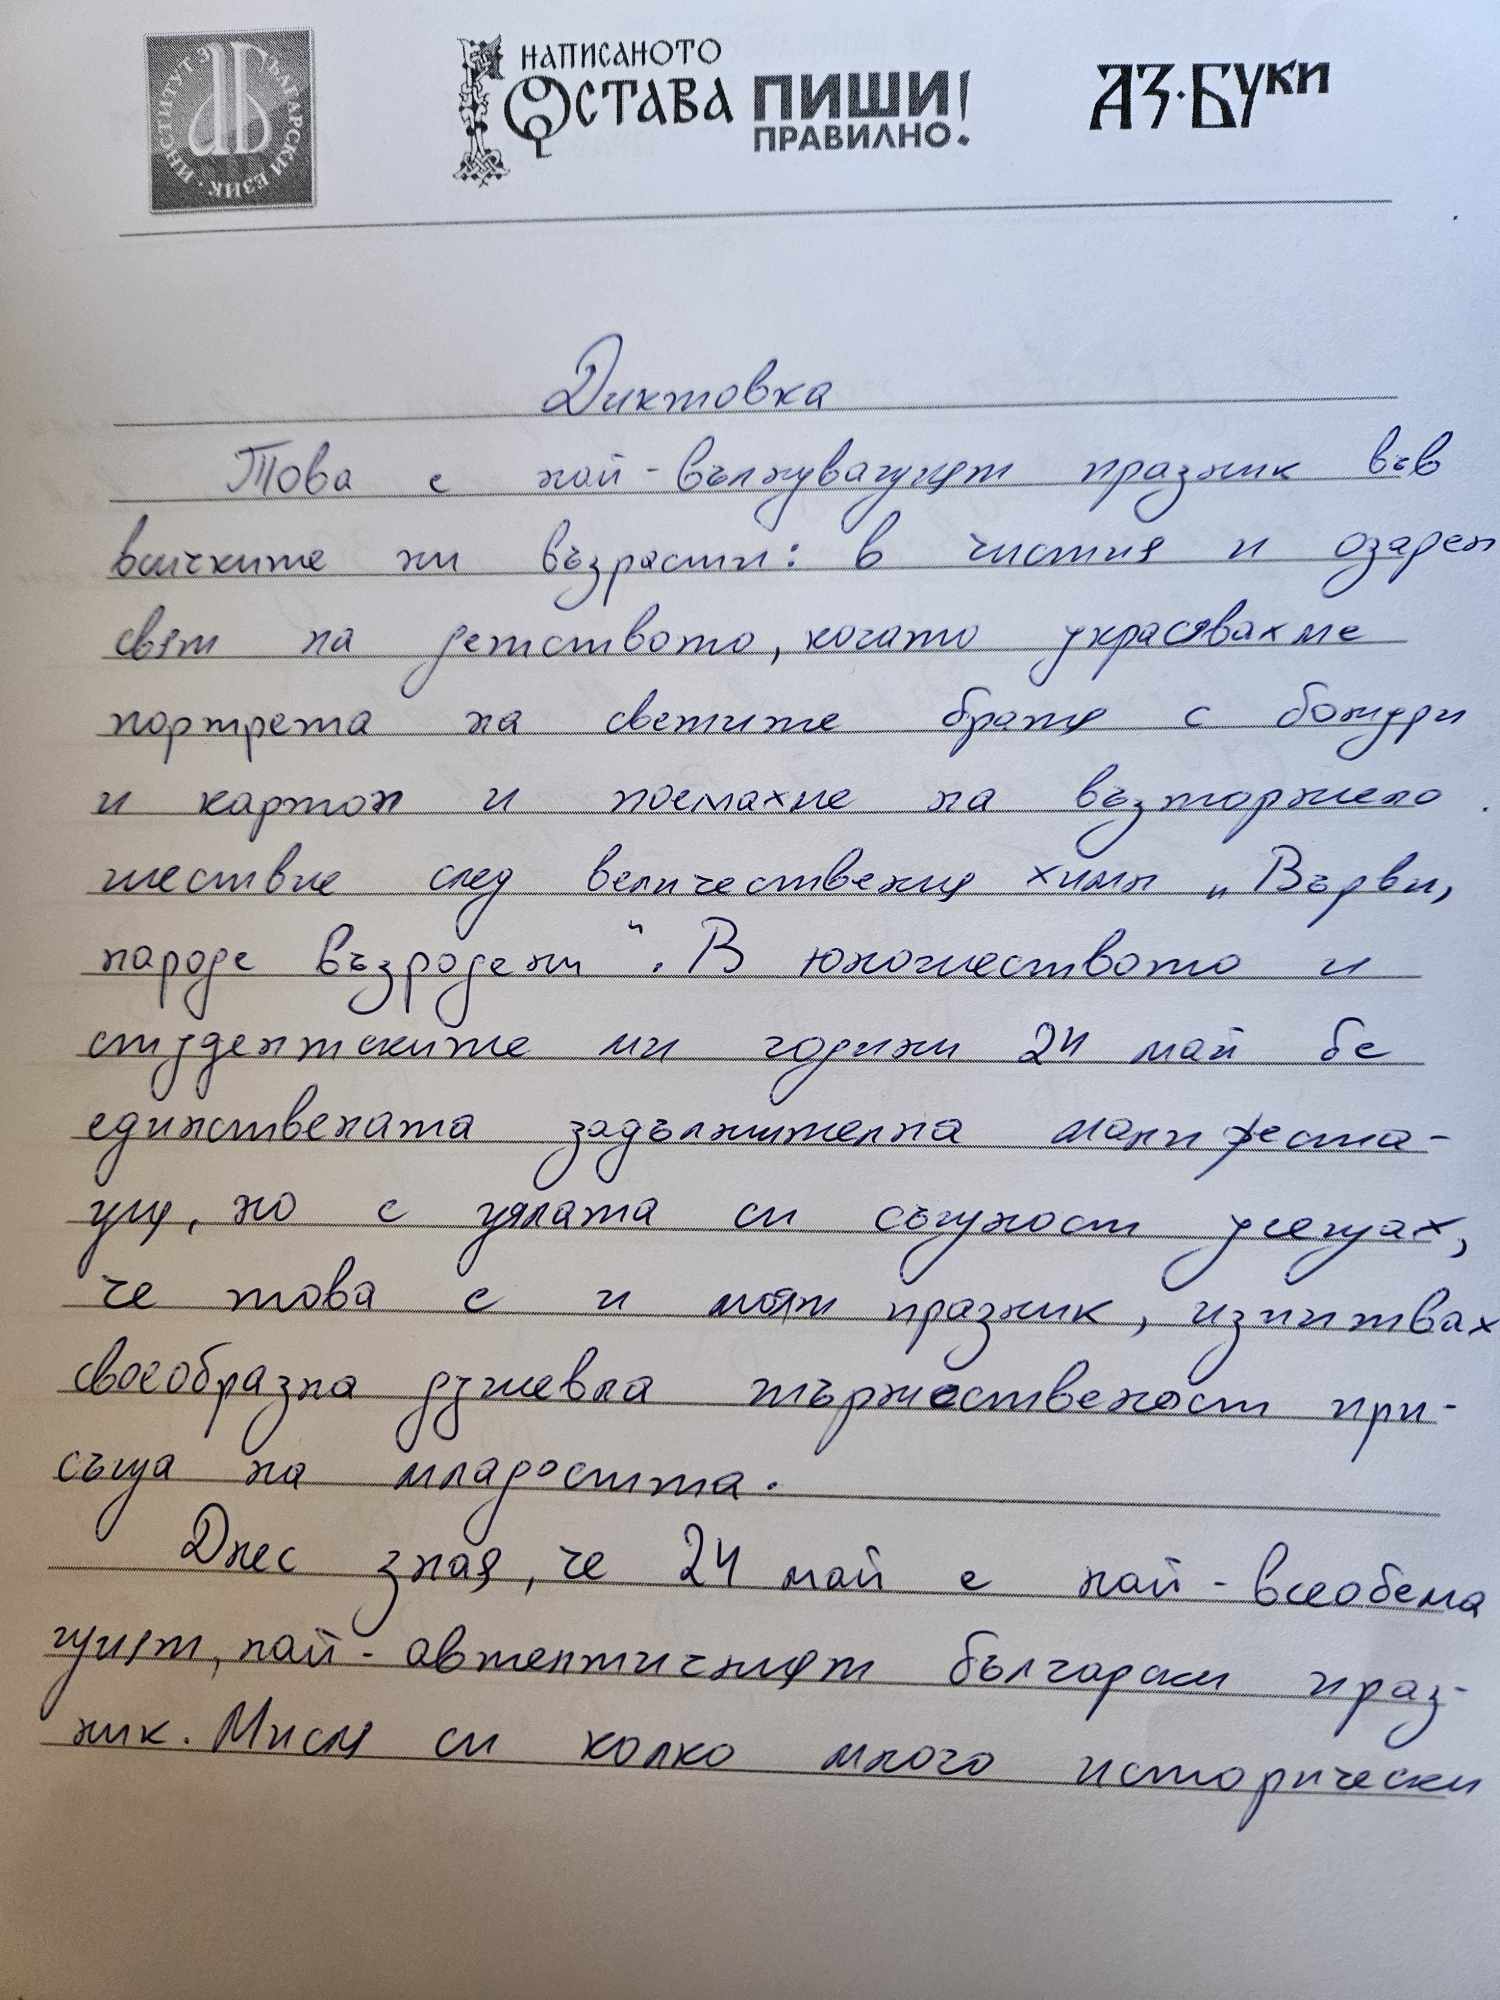 ИНСТИТУТ ЗА БЪЛГАРСКИ ЕЗИК
НАПИСАНОТО ОСТАВА ПИШИ ПРАВИЛНО!
АЗ·БУКИ
Диктовка
Това е най-вълнуващият празник във
всичките ни възрасти: в чистия и озарен
свят на детството, когато украсявахме
портрета на светите братя с божури
и картон и поемахме на възторжено
шествие след величествения химн „Върви,
народе възродени“. В юношеството и
студентските ми години 24 май бе
единствената задължителна манифеста-
ция, но с цялата си същност усещах,
че това е и моят празник, изпитвах
своеобразна душевна тържественост при-
съща на младостта.
Днес зная, че 24 май е най-всеобема
щият, най-автентичният български праз-
ник. Мисля си колко много исторически